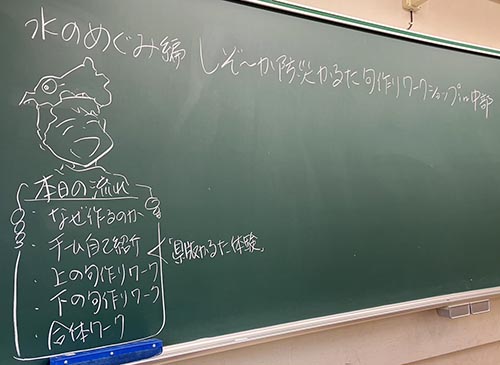 水のめぐみ編 しぞ〜か防災かるた句作りワークショップin中部
本日の流れ
・なぜ作るのか
・チーム自己紹介
「県版かるた体験」
・上の句作りワーク
・下の句作りワーク
・合体ワーク